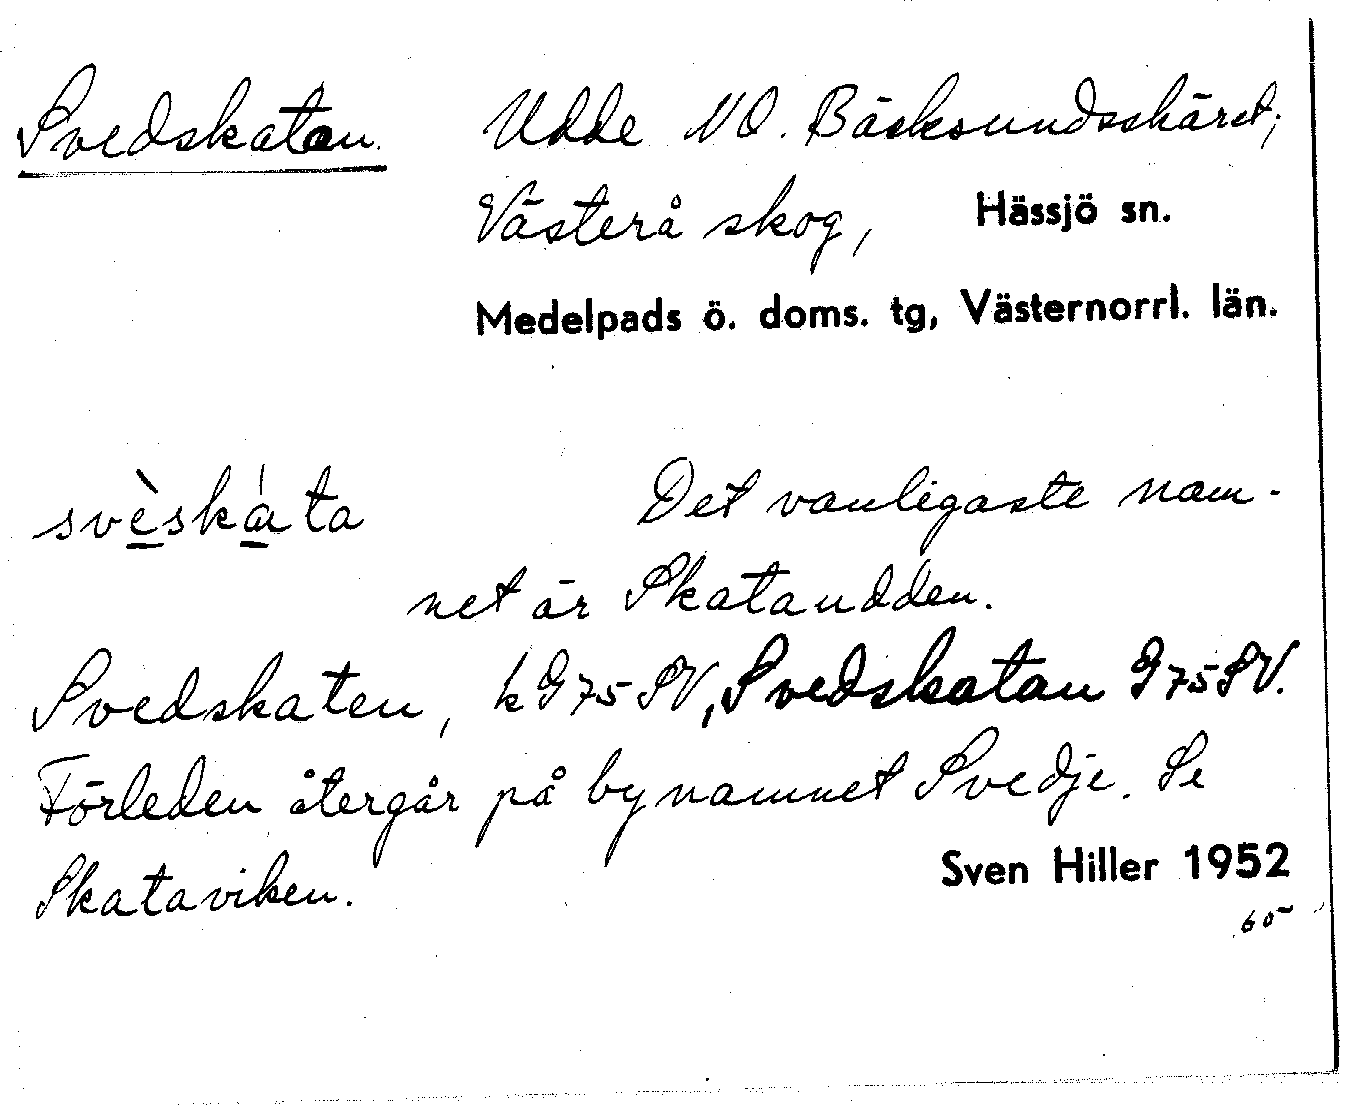 Svedskatan. Udde NO. Bäcksundsskäret;
Västerå skog, Hässjö sn.
Medelpads ö. doms. tg, Västernorrl. län.
svèskáta Det vanligaste nam-
net är Skataudden.
Svedskaten, k G75 SV, Svedskatan G75SV.
Förleden återgår på bynamnet Svedje. Se
Skataviken. Sven Hiller 1952